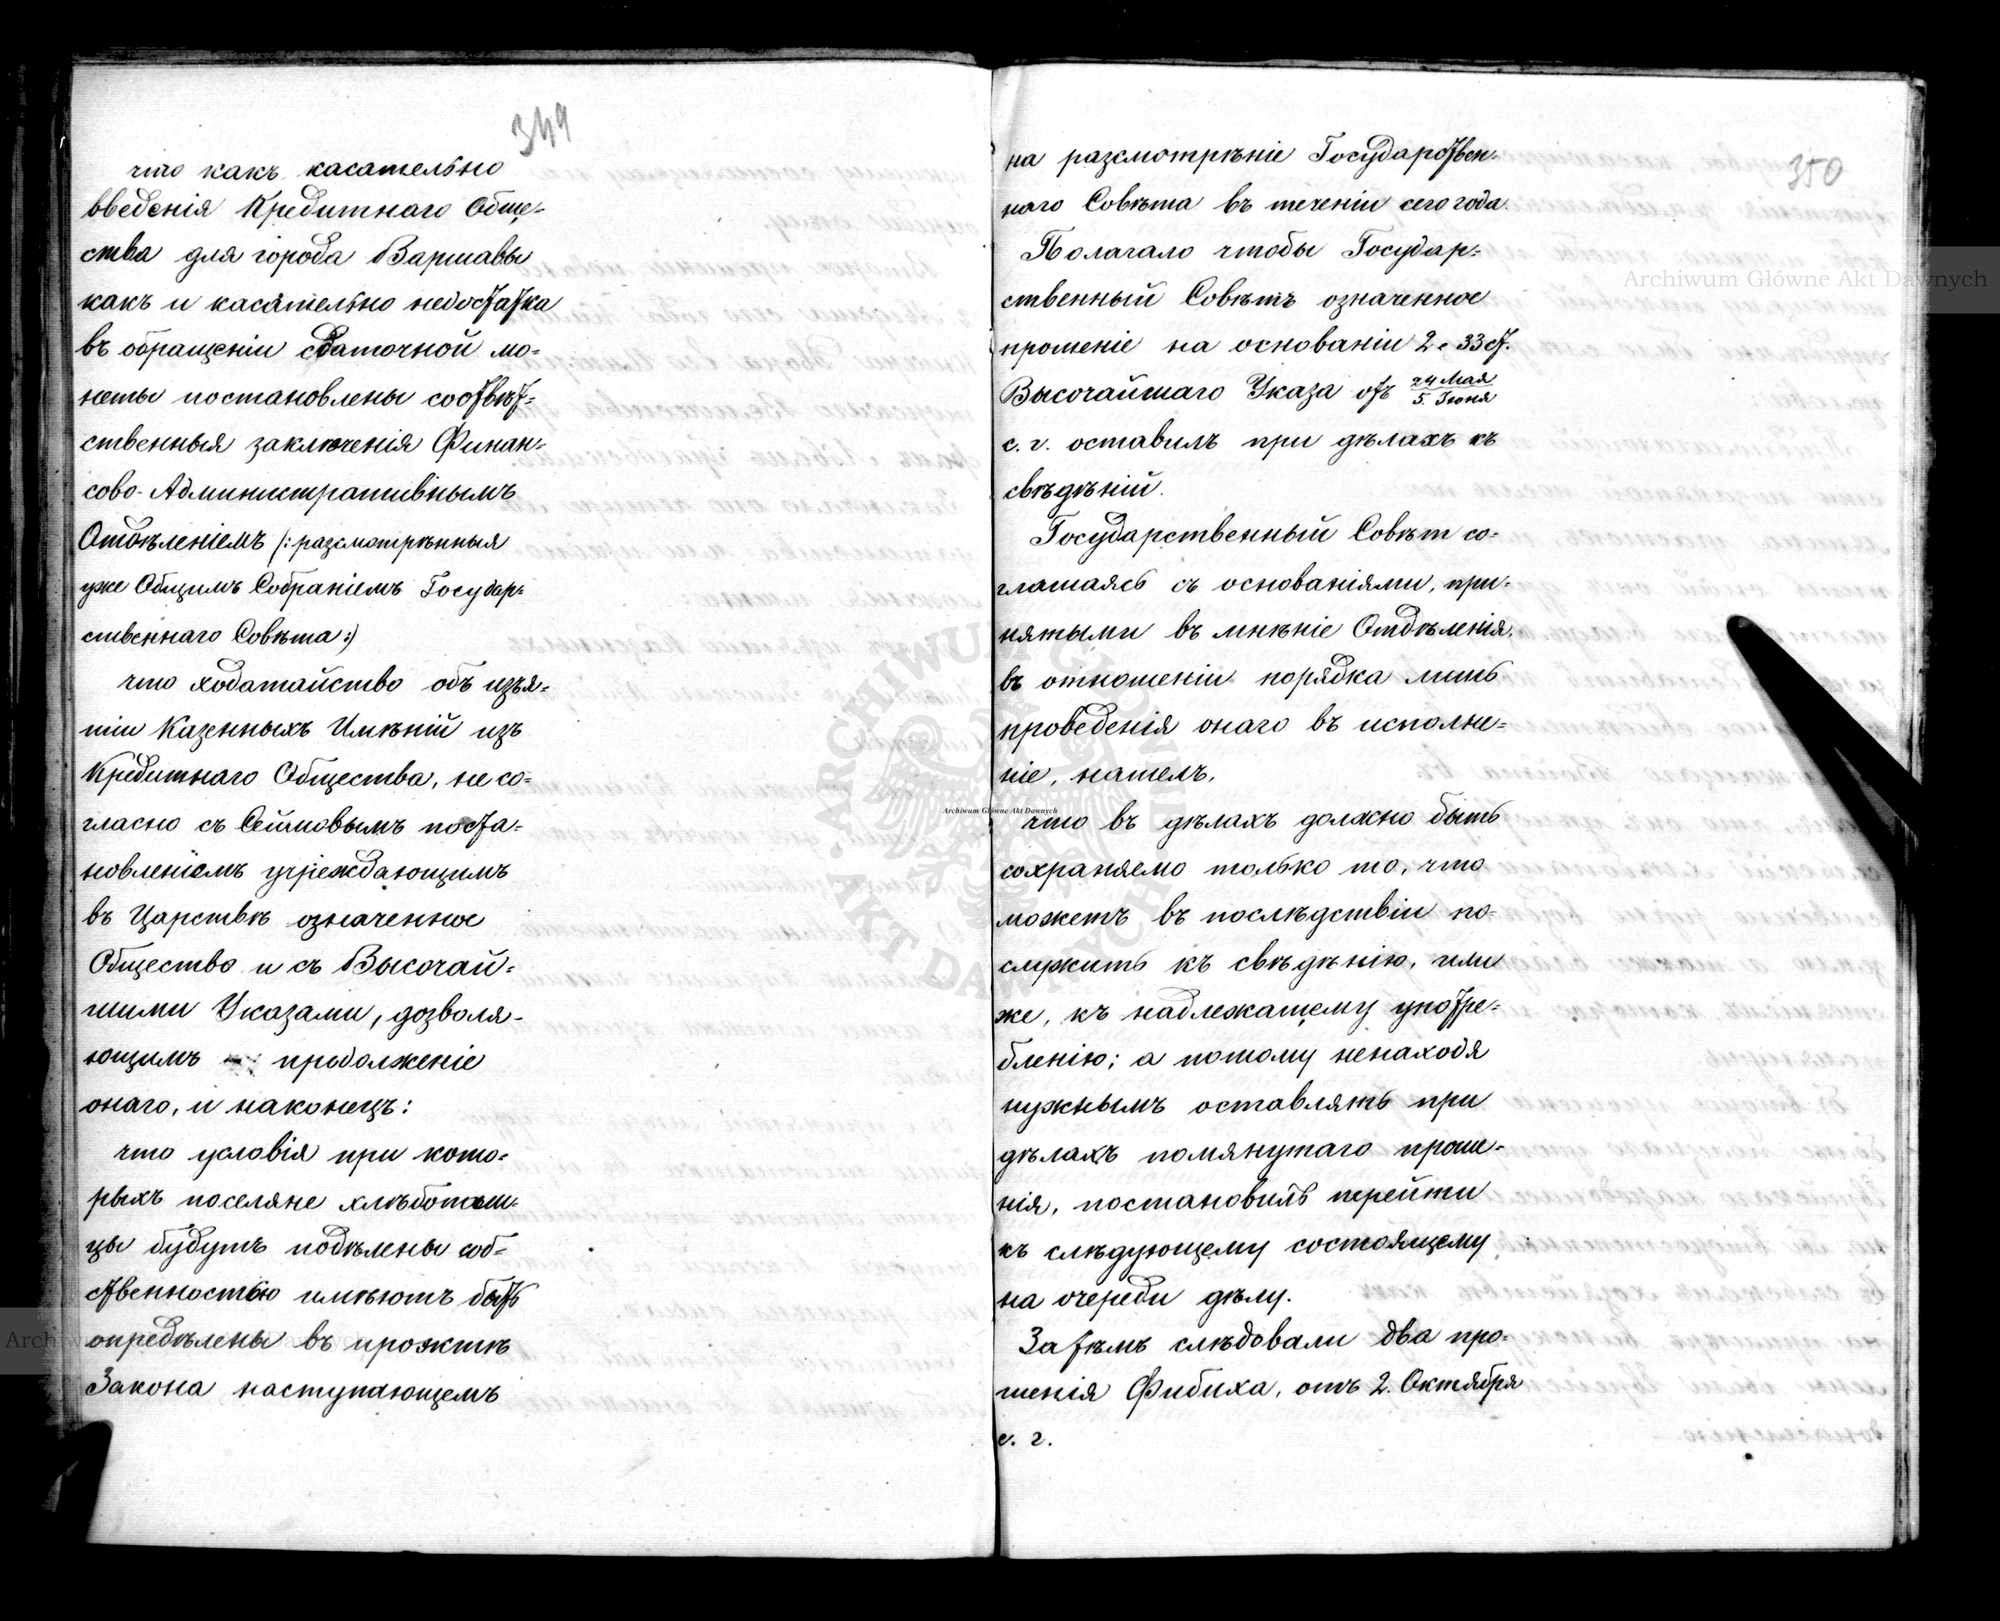 349
что какъ касательно
введенія Кредитнаго Обще-
ства для города Варшавы
какъ и касательно недостатка
въ обращеніи сдаточной мо-
неты постановлены соотвѣт-
ственныя заключенія Финан-
сово-Административнымъ
Отдѣленіемъ /: разсмотрѣнныя
уже Общимъ Собраніемъ Государ-
ственнаго Совѣта :/
что ходатайство объ изъя-
тіи Казенныхъ Имѣній изъ
Кредитнаго Общества, не со-
гласно съ Сеймовымъ поста-
новленіемъ учреждающимъ
въ Царствѣ означенное
Общество и съ Высочай-
шими Указами, дозволя-
ющимъ продолженіе
онаго, и наконецъ:
что условія при кото-
рыхъ поселяне хлѣбопаш-
цы будутъ надѣлены соб-
ственностью имѣютъ быть
опредѣлены въ проэктѣ
Закона наступающемъ
350
на разсмотрѣніе Государствен-
наго Совѣта въ теченіи сего года.
Полагало чтобы Государ-
ственный Совѣтъ означенное
прошеніе на основаніи 2. 33 ст.
Высочайшаго Указа отъ 24 Мая/5 Іюня
с. г. оставилъ при дѣлахъ къ
свѣдѣній.
Государственный Совѣт со-
глашаясь съ основаніями, при-
нятыми въ мнѣніе Отдѣленія,
въ отношеніи порядка лишь
проведенія онаго въ исполне-
ніе, нашелъ,
что въ дѣлахъ должно быть
сохраняемо только то, что
можетъ въ послѣдствіи по-
служить къ свѣдѣнію, или
же, къ надлежащему употре-
бленію; а потому ненаходя
нужнымъ оставлять при
дѣлахъ помянутаго проше-
нія, постановилъ перейти
къ слѣдующему состоящему
на очереди дѣлу.
Затѣмъ слѣдовали два про-
шенія Фибиха, отъ 2. Октября
с. г.
Archiwum Główne Akt Dawnych
Archiwum Główne Akt Dawnych